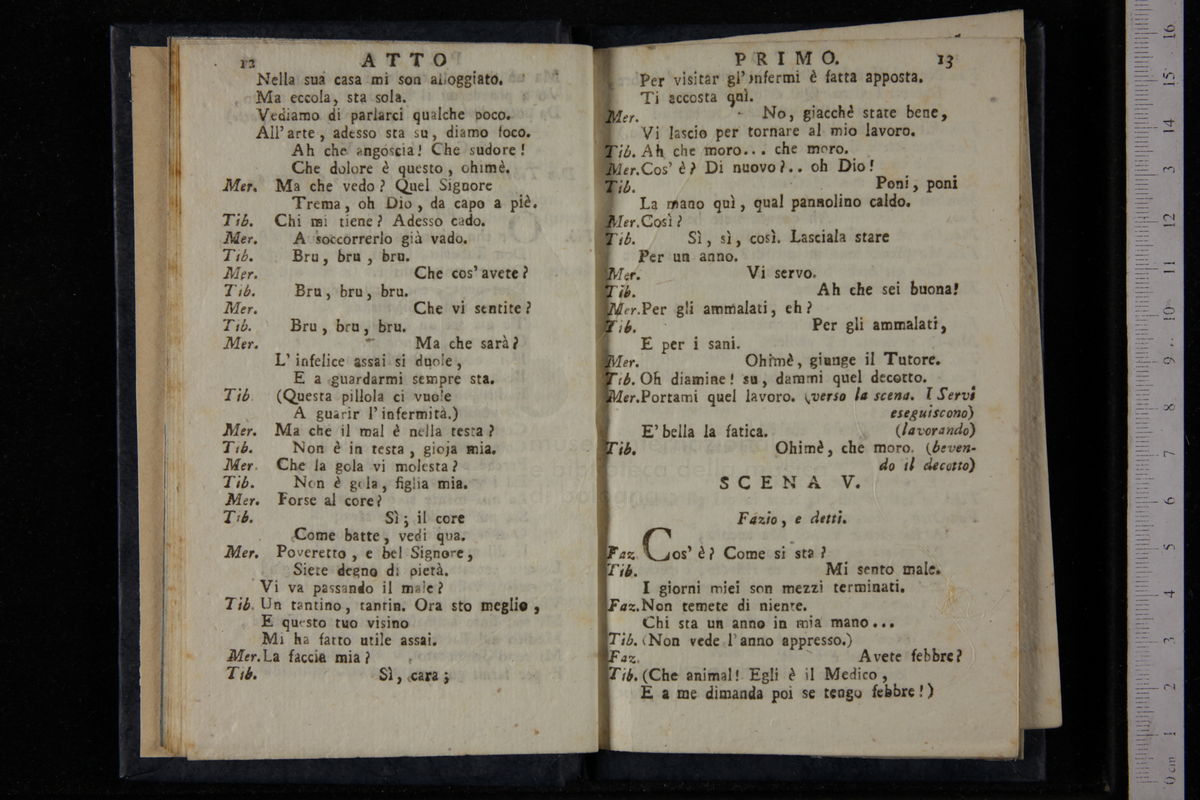 12 ATTO
Nella sua casa mi son alloggiato.
Ma eccola, sta sola.
Vediamo di parlarci qualche poco.
All'arte, adesso sta su, diamo foco.
Ah che angoscia! Che sudore!
Che dolore è questo, ohimè.
Mer. Ma che vedo? Quel Signore
Trema, oh Dio, da capo a piè.
Tib. Chi mi tiene? Adesso cado.
Mer. A soccorrerlo già vado.
Tib. Bru, bru, bru.
Mer. Che cos'avete?
Tib. Bru, bru, bru.
Mer. Che vi sentite?
Tib. Bru, bru, bru.
Mer. Ma che sarà?
L'infelice assai si duole,
E a guardarmi sempre sta.
Tib. (Questa pillola ci vuole
A guarir l'infermità.)
Mer. Ma che il mal è nella testa?
Tib. Non è in testa, gioja mia.
Mer. Che la gola vi molesta?
Tib. Non è gola, figlia mia.
Mer. Forse al core?
Tib. Sì; il core
Come batte, vedi qua.
Mer. Poveretto, e bel Signore,
Siete degno di pietà.
Vi va passando il male?
Tib. Un tantino, tantin. Ora sto meglio,
E questo tuo visino
Mi ha fatto utile assai.
Mer. La faccia mia?
Tib. Sì, cara;
PRIMO. 13
Per visitar gl'infermi è fatta apposta.
Ti accosta quì.
Mer. No, giacchè state bene,
Vi lascio per tornare al mio lavoro.
Tib. Ah che moro... che moro.
Mer. Cos' è? Di nuovo?.. oh Dio!
Tib. Poni, poni
La mano quì, qual pannolino caldo.
Mer. Così?
Tib. Sì, sì, così. Lasciala stare
Per un anno.
Mer. Vi servo.
Tib. Ah che sei buona!
Mer. Per gli ammalati, eh?
Tib. Per gli ammalati,
E per i sani.
Mer. Ohimè, giunge il Tutore.
Tib. Oh diamine! su, dammi quel decotto.
Mer. Portami quel lavoro. (verso la scena. I Servi
eseguiscono)
E' bella la fatica. (lavorando)
Tib. Ohimè, che moro. (beven-
do il decotto)
SCENA V.
Fazio, e detti.
Faz. Cos' è? Come si sta?
Tib. Mi sento male.
I giorni miei son mezzi terminati.
Faz. Non temete di niente.
Chi sta un anno in mia mano...
Tib. (Non vede l'anno appresso.)
Faz. Avete febbre?
Tib. (Che animal! Egli è il Medico,
E a me dimanda poi se tengo febbre!)